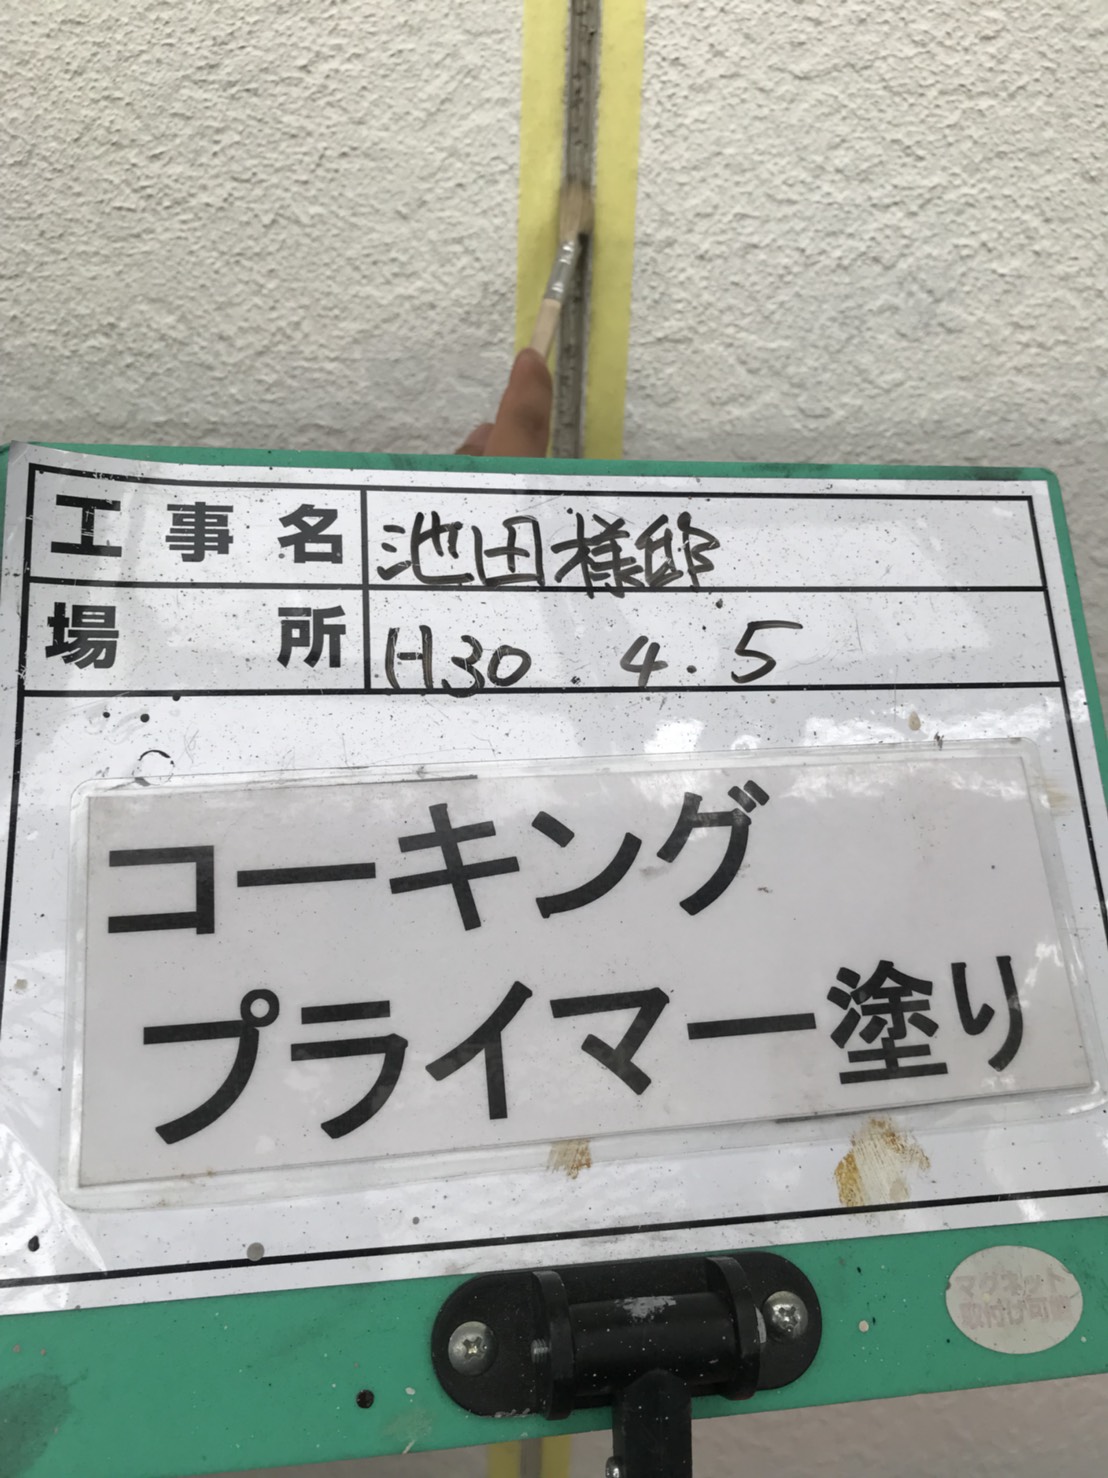 工事名 池田様邸
場所 H30.4.5
コーキング
プライマー塗り
マグネット
取付け可能